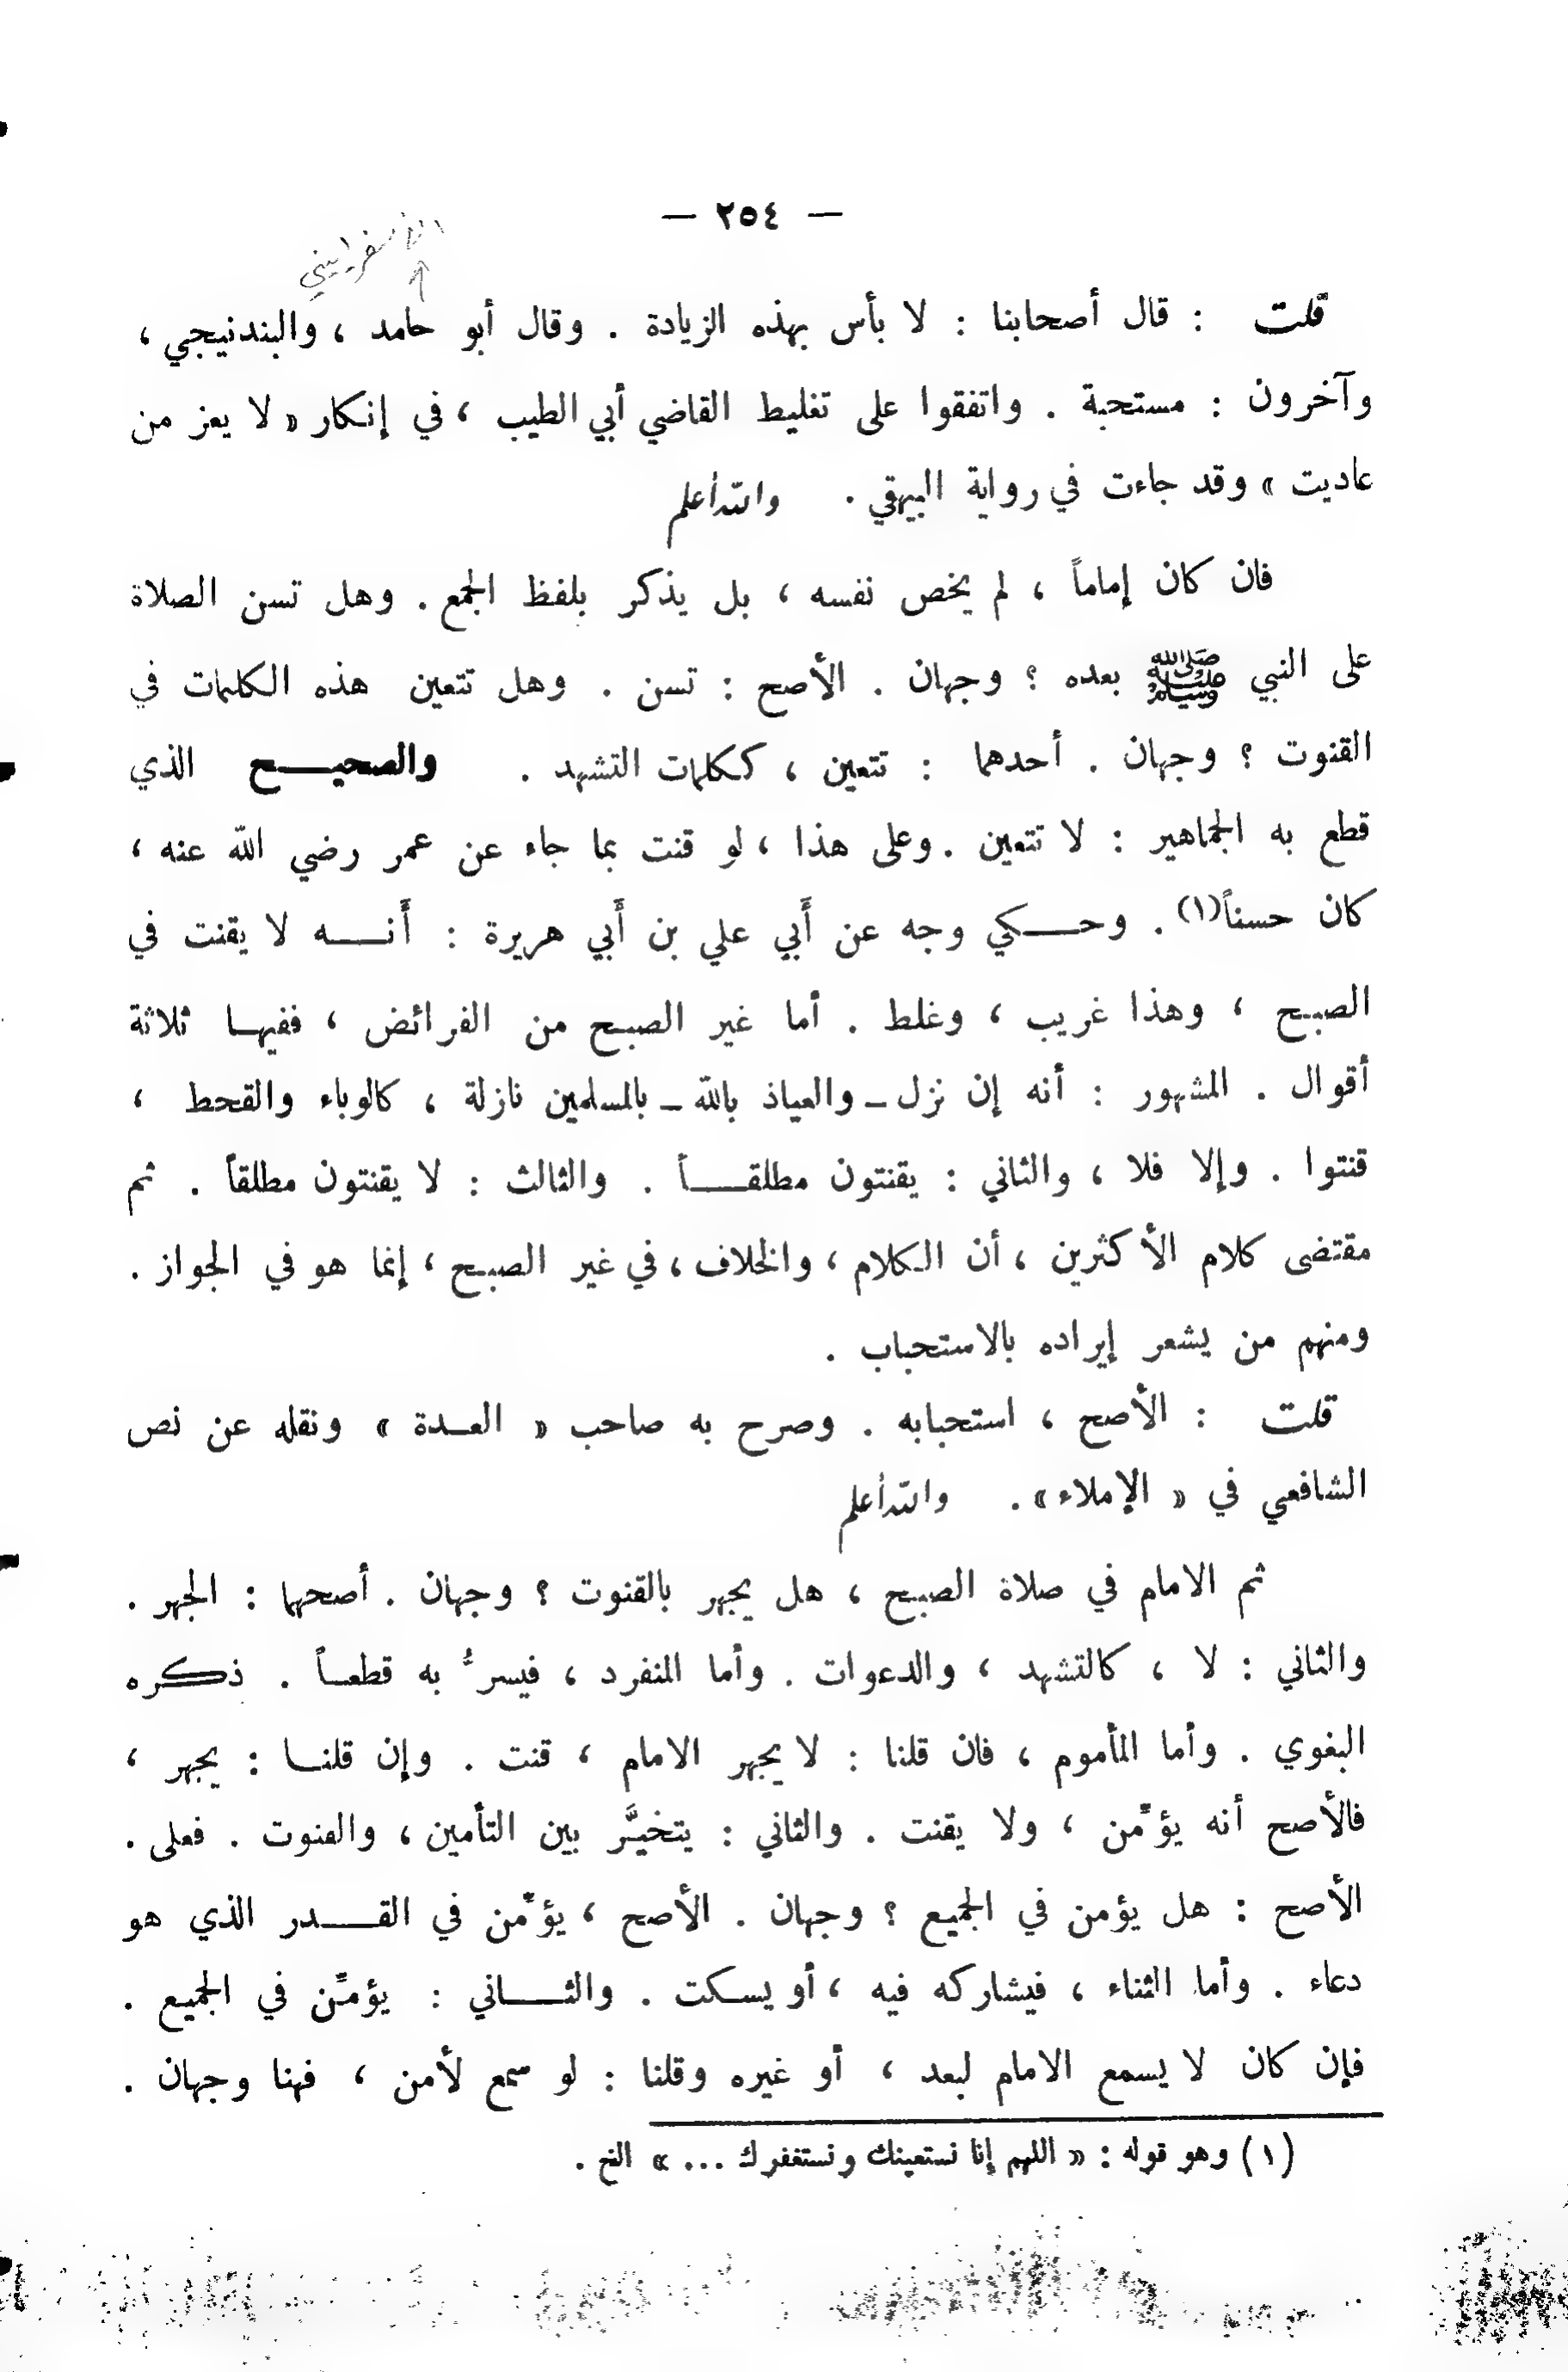 — ٢٥٤ —
الاسفراييني
قلت : قال أصحابنا : لا بأس بهذه الزيادة . وقال أبو حامد ، والبندنيجي ،
وآخرون : مستحبة . واتفقوا على تغليط القاضي أبي الطيب ، في إنكار « لا يعز من
عاديت » وقد جاءت في رواية البيهقي . والله أعلم
فان كان إماماً ، لم يخص نفسه ، بل يذكر بلفظ الجمع . وهل تسن الصلاة
على النبي ﷺ بعده ؟ وجهان . الأصح : تسن . وهل تتعين هذه الكلمات في
القنوت ؟ وجهان . أحدهما : تتعين ، ككلمات التشهد . والصحيـــح الذي
قطع به الجماهير : لا تتعين . وعلى هذا ، لو قنت بما جاء عن عمر رضي الله عنه ،
كان حسناً(١) . وحـــكي وجه عن أَبي علي بن أَبي هريرة : أَنـــه لا يقنت في
الصبح ، وهذا غريب ، وغلط . أما غير الصبح من الفرائض ، ففيهـا ثلاثة
أقوال . المشهور : أنه إن نزل ـ والعياذ بالله ـ بالمسلمين نازلة ، كالوباء والقحط ،
قنتوا . وإلا فلا ، والثاني : يقنتون مطلقـــاً . والثالث : لا يقنتون مطلقاً . ثم
مقتضى كلام الأكثرين ، أن الكلام ، والخلاف ، في غير الصبح ، إنما هو في الجواز .
ومنهم من يشعر إيراده بالاستحباب .
قلت : الأصح ، استحبابه . وصرح به صاحب « العـدة » ونقله عن نص
الشافعي في « الإملاء » . والله أعلم
ثم الامام في صلاة الصبح ، هل يجهر بالقنوت ؟ وجهان . أصحهما : الجهر .
والثاني : لا ، كالتشهد ، والدعوات . وأما المنفرد ، فيسرُّ به قطعـاً . ذكره
البغوي . وأما المأموم ، فان قلنا : لا يجهر الامام ، قنت . وإن قلنـا : يجهر ،
فالأصح أنه يؤمِّن ، ولا يقنت . والثاني : يتخيَّر بين التأمين ، والقنوت . فعلى .
الأصح : هل يؤمن في الجميع ؟ وجهان . الأصح ، يؤمِّن في القـــدر الذي هو
دعاء . وأما الثناء ، فيشاركه فيه ، أو يسكت . والثـــاني : يؤمِّن في الجميع .
فإن كان لا يسمع الامام لبعد ، أو غيره وقلنا : لو سمع لأمن ، فهنا وجهان .
(١) وهو قوله : « اللهم إنا نستعينك ونستغفرك ... » الخ .